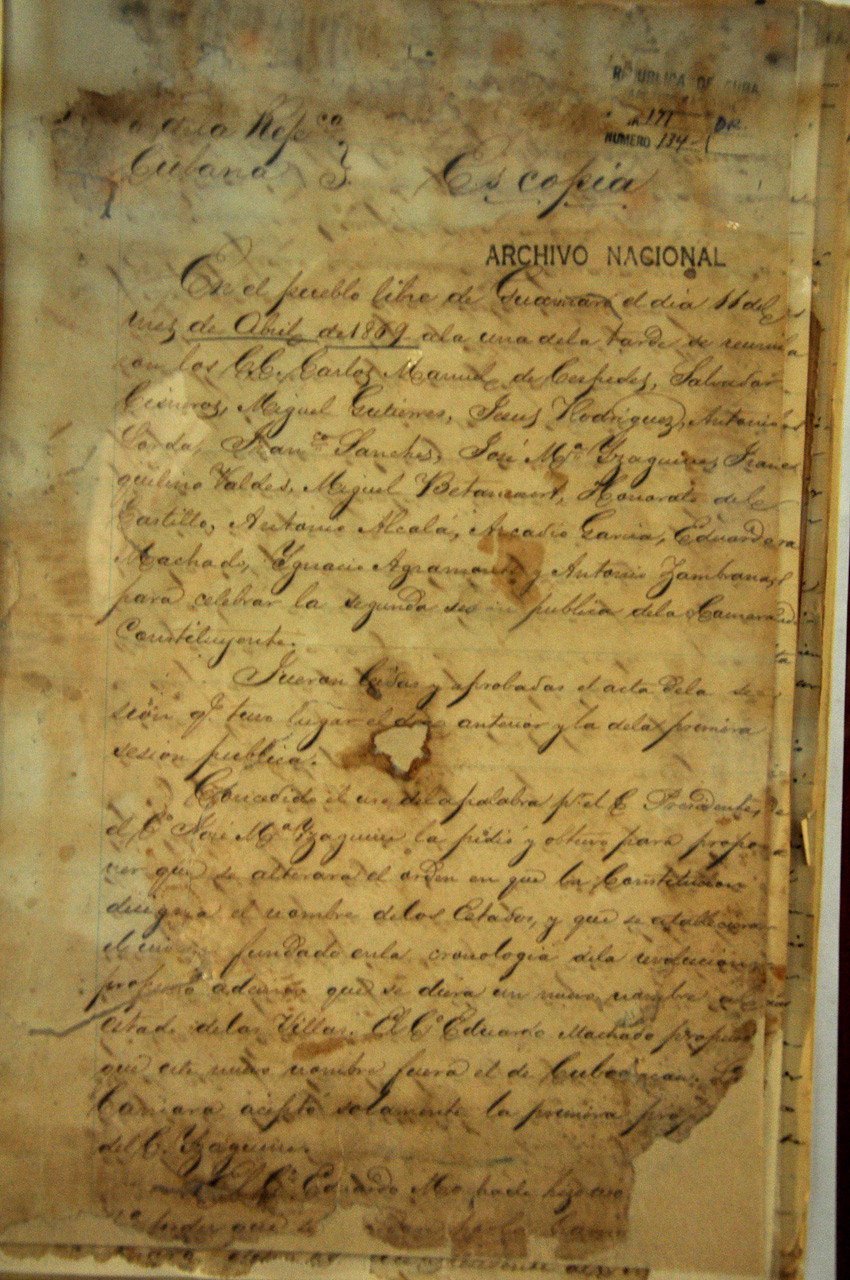 REPUBLICA DE CUBA
171
NUMERO 134-1
de la Repca
Cubana
Es copia
ARCHIVO NACIONAL
En el pueblo libre de Guaimaro el dia 11 del
mes de Abril de 1869 a la una de la tarde se reunie
ron los C.C. Carlos Manuel de Cespedes, Salvador
Cisneros, Miguel Gutierres, Jesus Rodriguez, Antonio
Lorda, Franco Sanches, José Ma Yzaguirre,
Valdes, Miguel Betancourt, Honorato del
Castillo, Antonio Alcalá, Arcadio Garcia, Eduardo
Machado, Ygnacio Agramonte y Antonio Zambrana
para celebrar la segunda publica de la Camara
Constituyente.
Fueron leidas y aprobadas el acta de la se
sión qe tuvo lugar el anterior y la de la primera
sesion publica.
Concedido el uso de la palabra pr el C. Presidente
el Co José Ma Yzaguirre la pidió y obtuvo para propo
ner que se alterara el órden en que la Constitucion
designa el nombre de los Estados, y que se estableciera
el fundado en la cronologia de la revolucion
propuso ademas que se diera un nuevo nombre al
estado de las Villas. El Co Eduardo Machado propuso
que este nuevo nombre fuera el de Cubanacan. La
Camara aceptó solamente la primera
del C. Yzaguirre.
El Co Eduardo Machado hizo
que